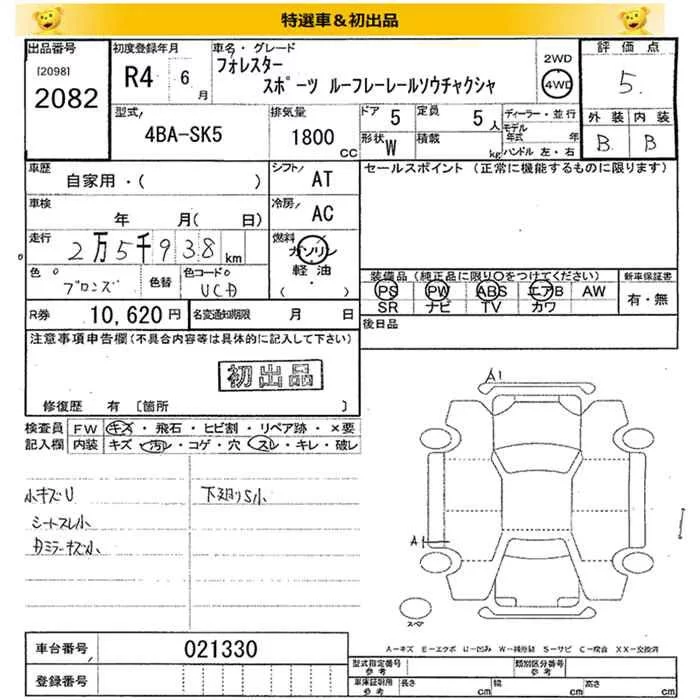 特選車&初出品
出品番号
[2098]
2082
初度登録年月
R4 6月
車名・グレード
フォレスター
スポーツ ルーフレールソウチャクシャ
2WD
4WD
評価点
5.
外装 内装
B. B
型式
4BA-SK5
排気量
1800 CC
ドア 5
定員 5人
形状 W
積載 kg
ディーラー・並行
モデル年式 年
ハンドル 左・右
車歴
自家用・( )
シフト AT
車検
年 月( 日)
冷房 AC
走行
2万5千938 km
燃料
ガソリン
軽油
・( )
色
ブロンズ
色替
色コードNo
UCD
R券 10,620円
名変通知期限 月 日
セールスポイント (正常に機能するものに限ります)
装備品 (純正品に限り○をつけてください)
PS PW ABS エアB AW
SR ナビ TV カワ
新車保証書
有・無
後日品
注意事項申告欄(不具合内容等は具体的に記入して下さい)
初出品
修復歴 有 [箇所 ]
検査員記入欄
FW キズ・飛石・ヒビ割・リペア跡・×要
内装 キズ・汚レ・コゲ・穴・スレ・キレ・破レ
小キズU
下廻りS小
シートスレ小
Dミラーキズ小
A1
A1
スペア
A-キズ E-エクボ U-凹み W-補修跡 S-サビ C-腐食 XX-交換済
車台番号 021330
登録番号
型式指定番号 参考
類別区分番号 参考
車庫証明用 参考
長さ cm
幅 cm
高さ cm